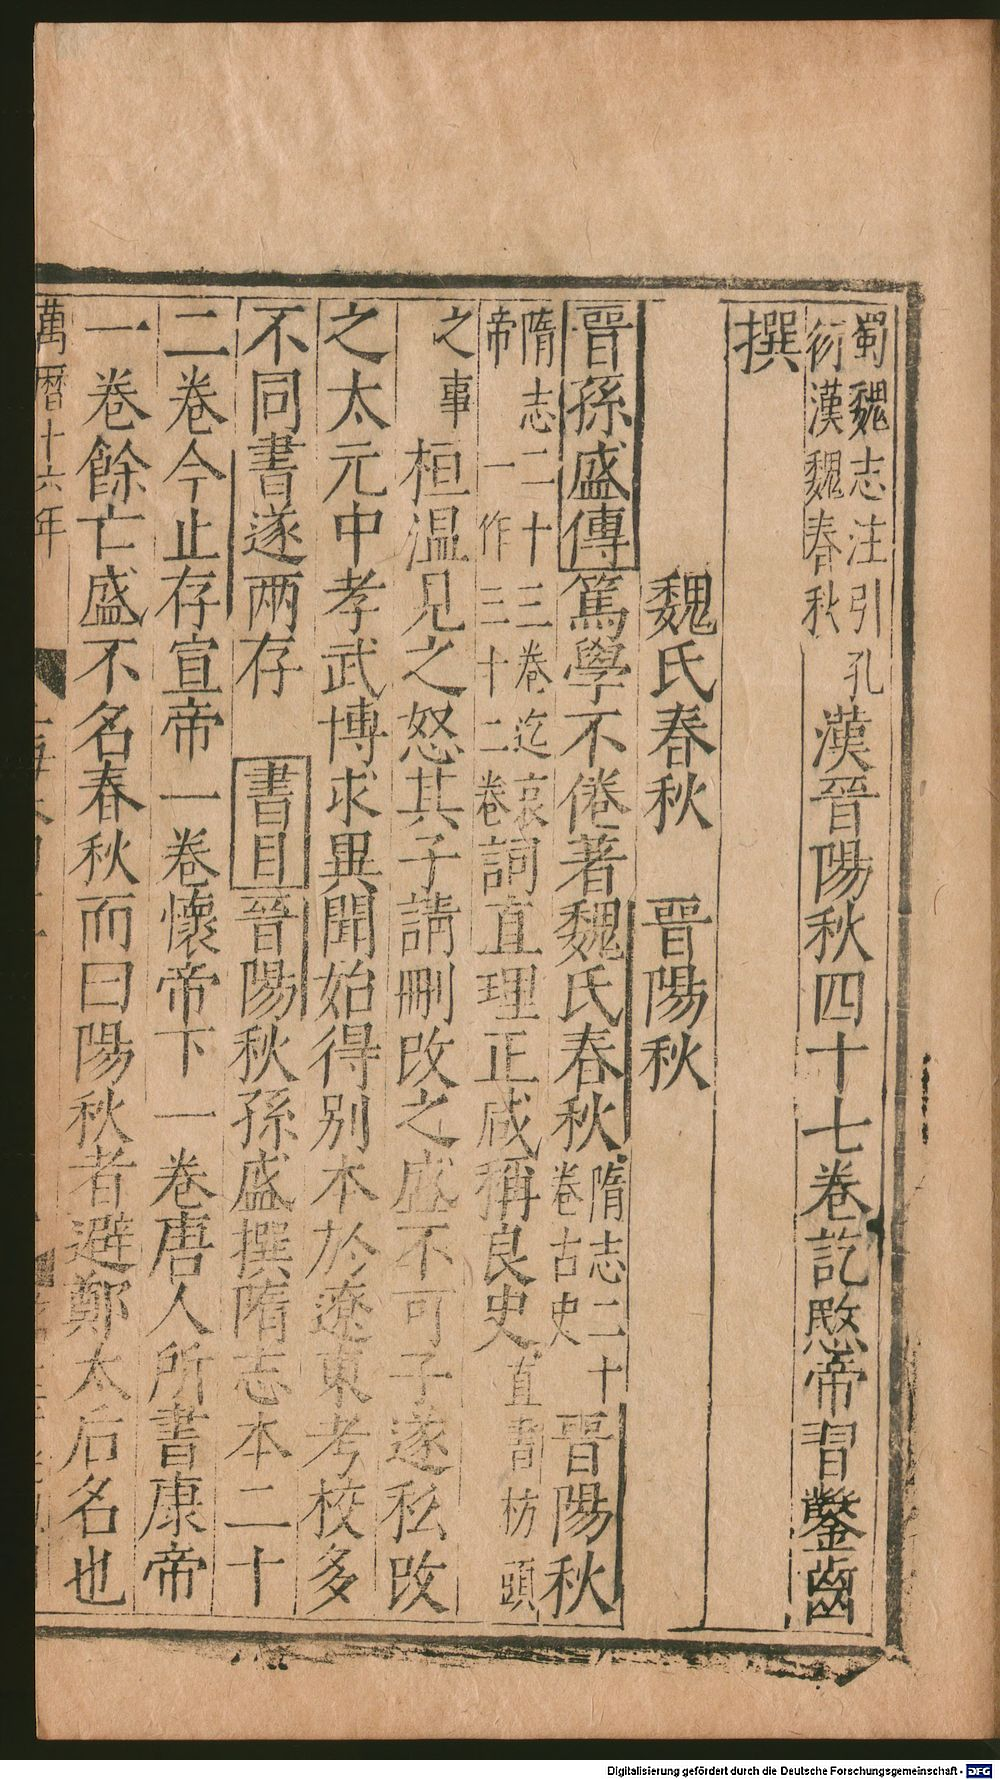 蜀魏志注引孔
衍漢魏春秋
漢晉陽秋四十七卷訖愍帝習鑿齒
撰
魏氏春秋　晉陽秋
晉孫盛傳篤學不倦著魏氏春秋
隋志二十
卷古史
晉陽秋
隋志二十三卷迄哀
帝一作三十二卷
詞直理正咸稱良史
直書枋頭
之事
桓温見之怒其子請刪改之盛不可子遂私改
之太元中孝武博求異聞始得别本於遼東考校多
不同書遂兩存　書目晉陽秋孫盛撰隋志本二十
二卷今止存宣帝一卷懷帝下一卷唐人所書康帝
一卷餘亡盛不名春秋而曰陽秋者避鄭太后名也
萬曆十六年
Digitalisierung gefördert durch die Deutsche Forschungsgemeinschaft - DFG